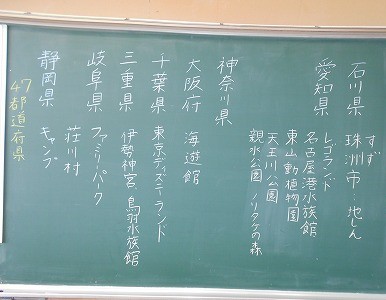 石川県 珠洲市…地しん
すず
愛知県 レゴランド
名古屋港水族館
東山動植物園
天王川公園
親水公園 ノリタケの森
神奈川県
大阪府 海遊館
千葉県 東京ディズニーランド
三重県 伊勢神宮 鳥羽水族館
岐阜県 ファミリーパーク
荘川村
静岡県 キャンプ
47都道府県